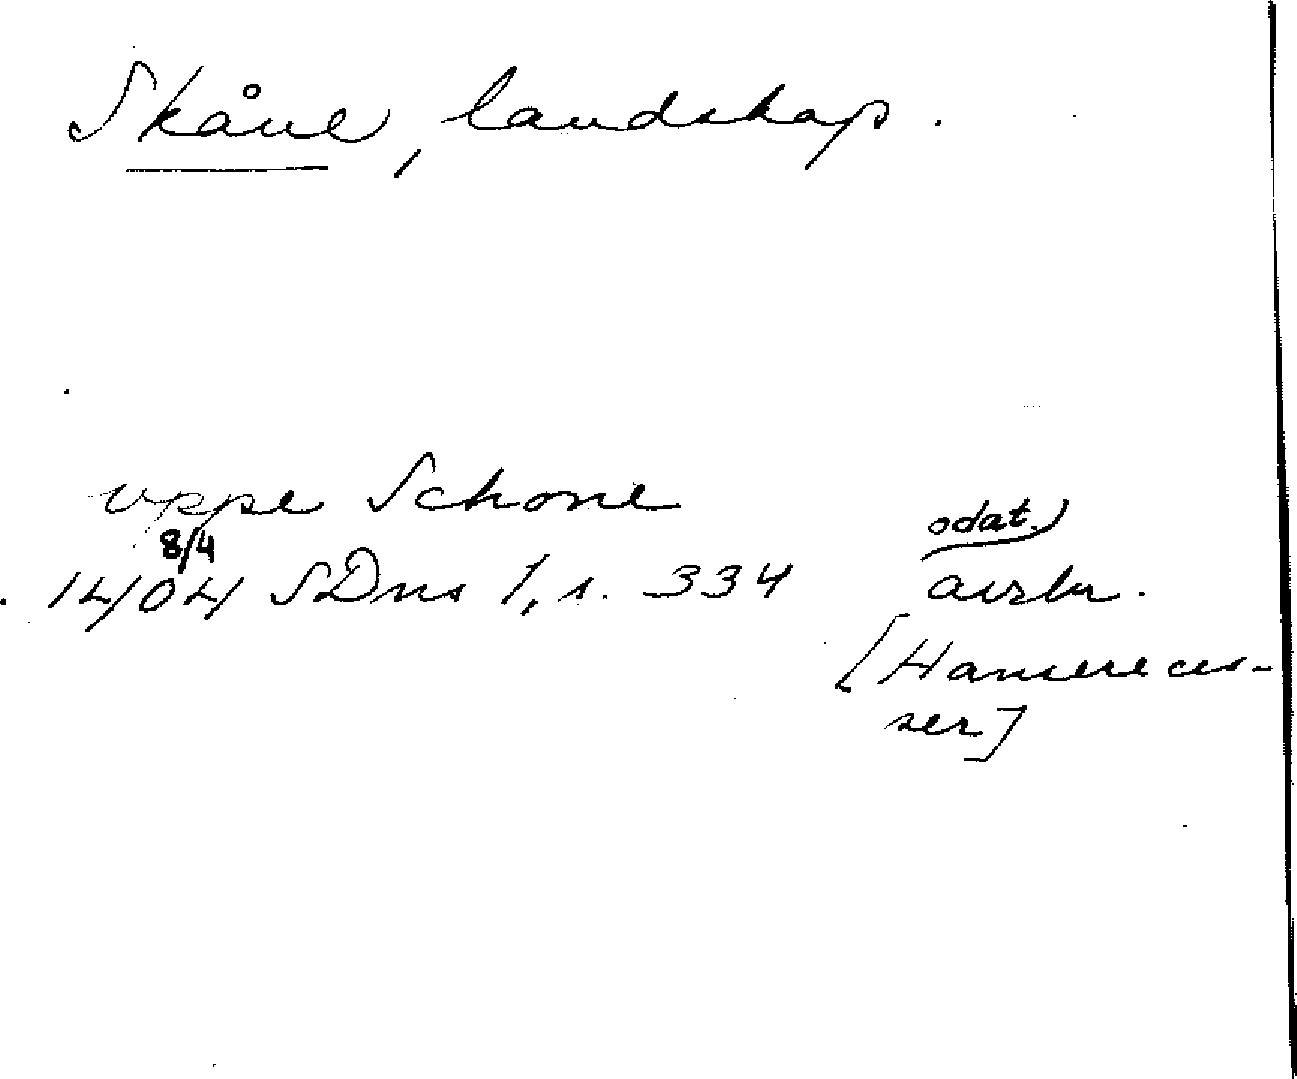 Skåne, landskap.
vppe Schone
8/4
1404 SDns 1, s. 334
odat.)
avskr.
[Hanserecesser]